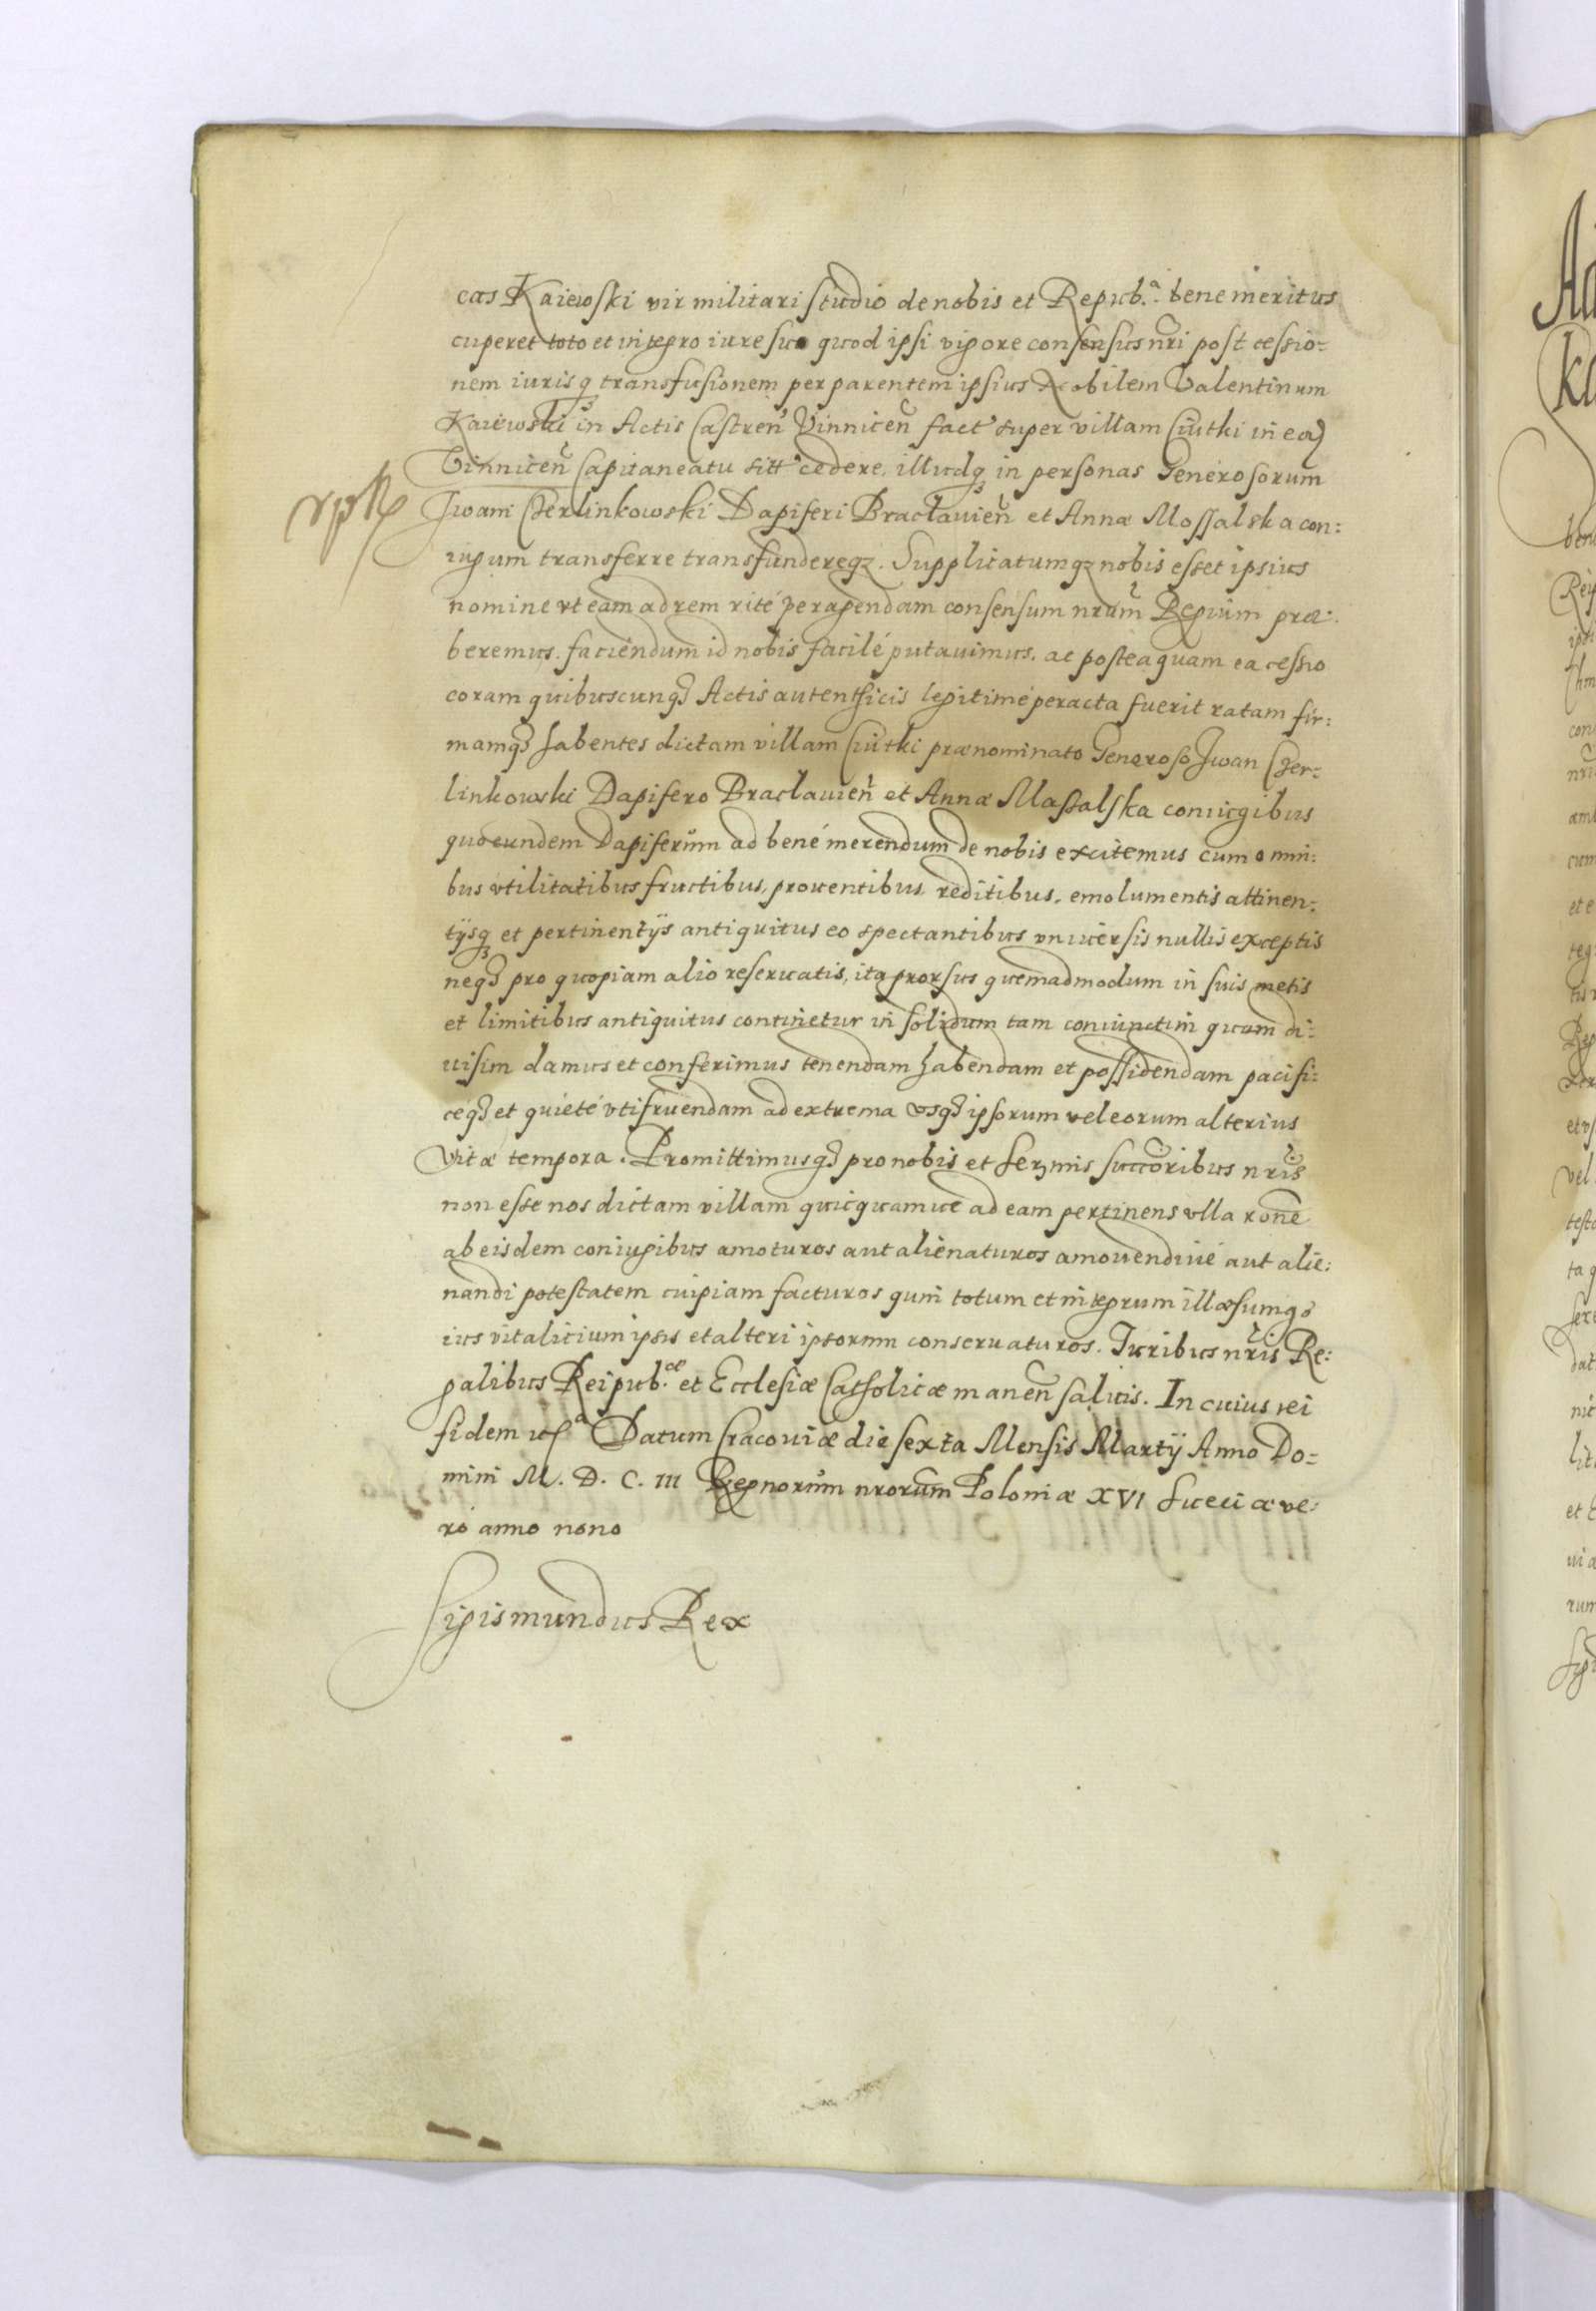 cas Kaiewski vir militari studio de nobis et Repub.ᵃ bene meritus
cuperet toto et integro iure suo quod ipsi vigore consensus nr̃i post cessio=
nem iurisq₃ transfusionem per parentem ipsius Nobilem Valentinum
Kaiewski in Actis Castren̄ Vinnicen̄ fact' super villam Ciutki in eod̄
Vinnicen̄ Capitaneatu sitt' cedere, illudq₃ in personas Generosorum
Jwani Czerlinkowski Dapiferi Bracłauien̄ et Annæ Mossalska con:
iugum transferre transfundereq₃. Supplicatumq₃ nobis esset ipsius
nomine vt eam ad rem rité peragendam consensum nrum̄ Regium præ:
beremus. faciendum id nobis facilé putauimus. ac posteaquam ea cessio
coram quibuscunq₃ Actis autenthicis legitimé peracta fuerit ratam fir:
mamq₃ habentes dictam villam Ciutki prænominato Generoso Jwan Czer=
linkowski Dapifero Bracłauien̄ et Annæ Massalska coniugibus
quo eundem Dapiferum ad bené merendum de nobis excitemus cum omni:
bus vtilitatibus fructibus, prouentibus reditibus, emolumentis attinen:
tÿsq₃ et pertinentÿs antiquitus eo spectantibus vniuersis nullis exceptis
neq₃ pro quopiam alio reseruatis, ita prorsus quemadmodum in suis metis
et limitibus antiquitus continetur in solidum tam coniunctim quam di:
uisim damus et conferimus tenendam habendam et possidendam pacifi:
céq₃ et quieté vtifruendam ad extrema vsq₃ ipsorum vel eorum alterius
vitæ tempora. Promittimusq₃ pro nobis et Ser₃mis succoribus̃ nris̃
non esse nos dictam villam quicquamue ad eam pertinens vlla ronẽ
ab eisdem coniugibus amoturos aut alienaturos amouendiué aut alie:
nandi potestatem cuipiam facturos quin totum et integrum illæsumq₃
ius vitalitium ipsis et alteri ipsorum conseruaturos. Juribus nris̃ Re:
galibus Reipub.ᵃᵉ et Ecclesiæ Catholicæ manen̄ saluis. In cuius rei
fidem
Datum Cracouiæ die sexta Mensis Martÿ Anno Do=
mini M. D. C. III Regnorum nrorum̃ Poloniæ XVI Sueciæ ve:
ro anno nono
Sigismundus Rex